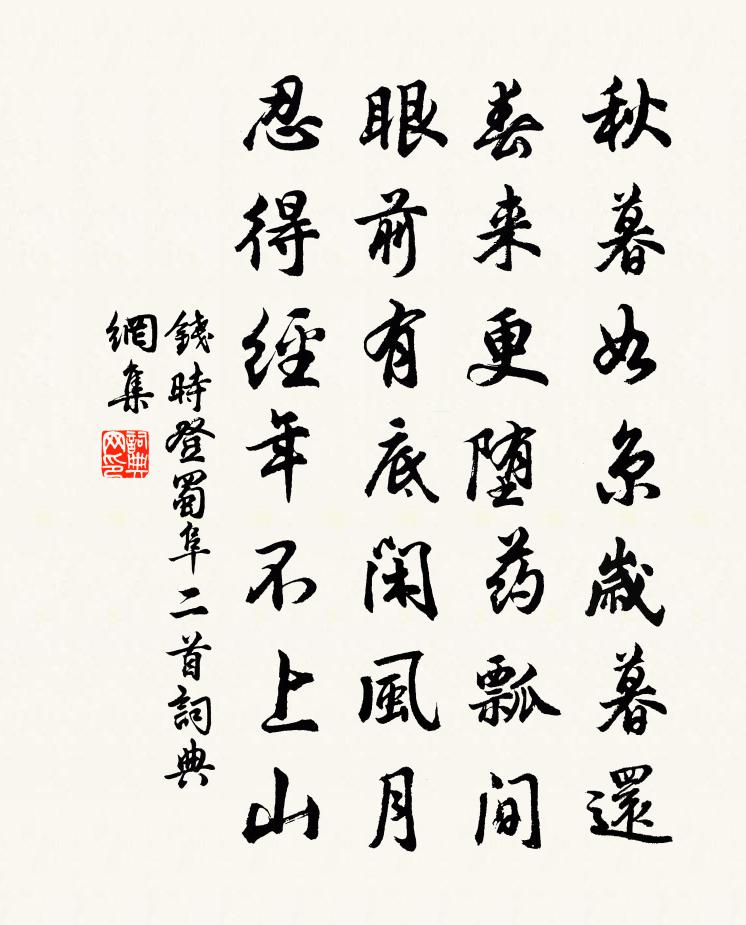 秋暮如京歲暮還
春来更堕药瓢间
眼前有底闲風月
忍得經年不上山
錢時登蜀阜二首詞典
網集
詞典网印